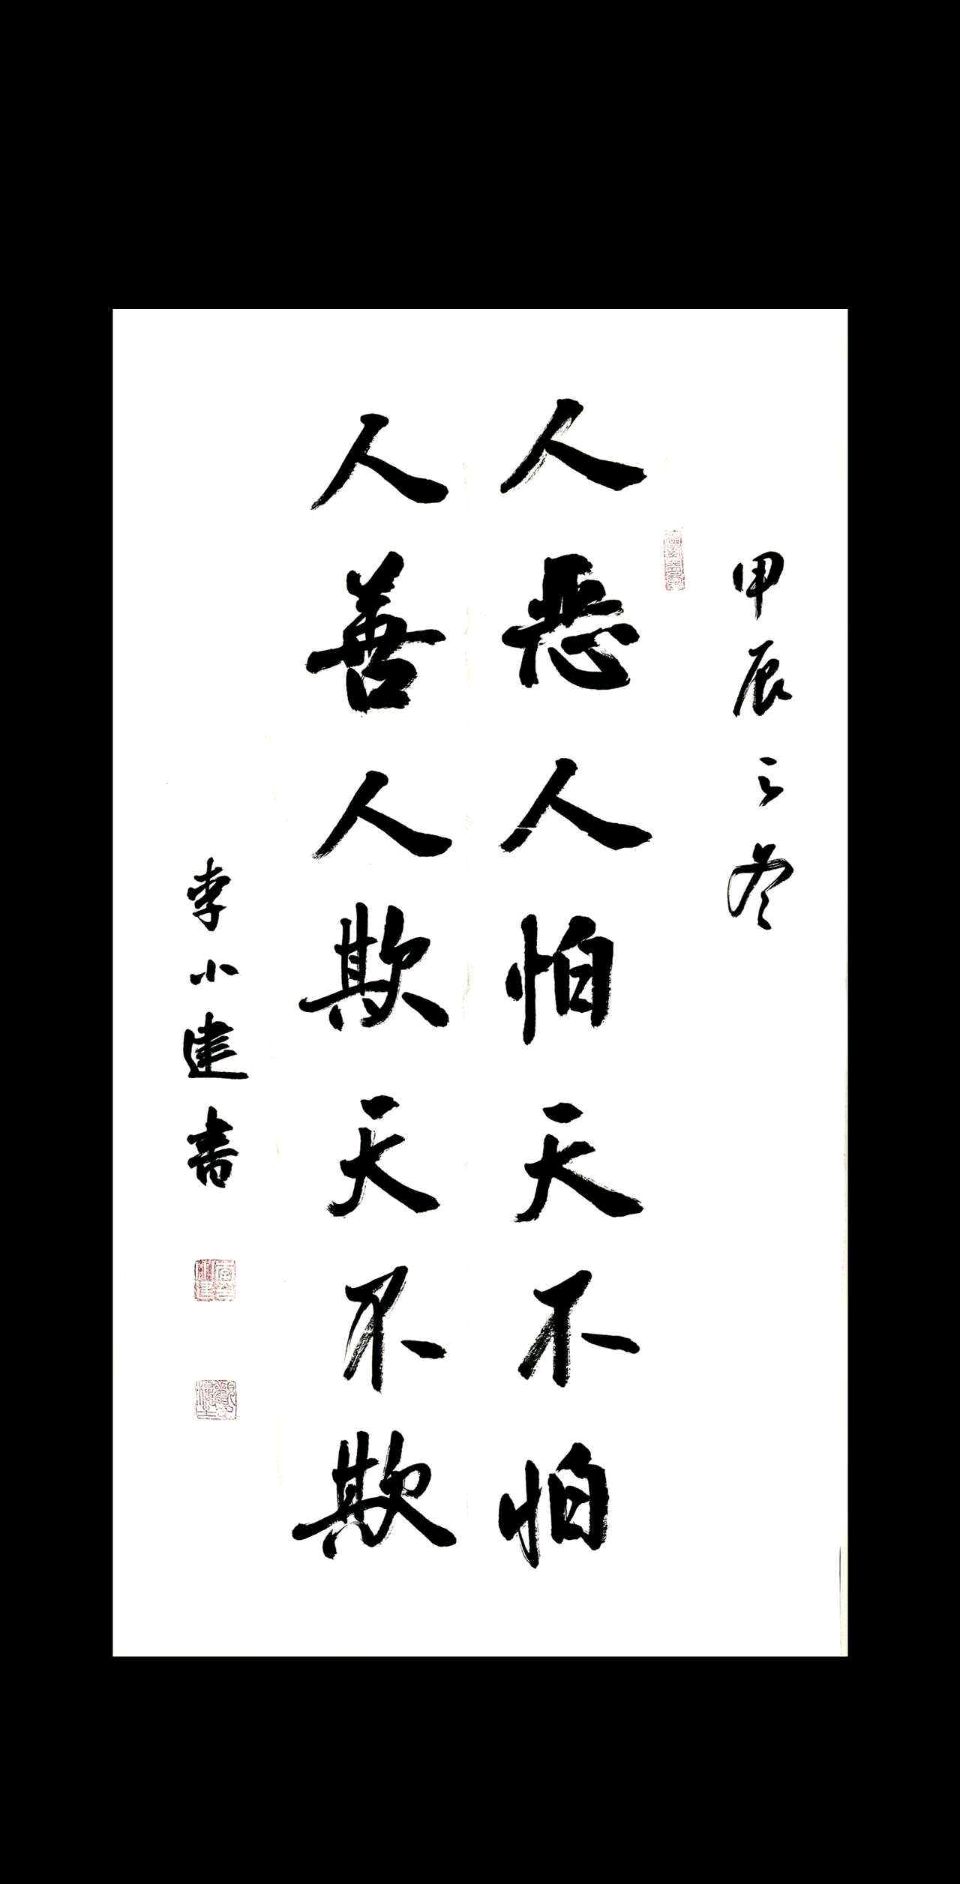 甲辰之冬
人恶人怕天不怕
人善人欺天不欺
李小建书